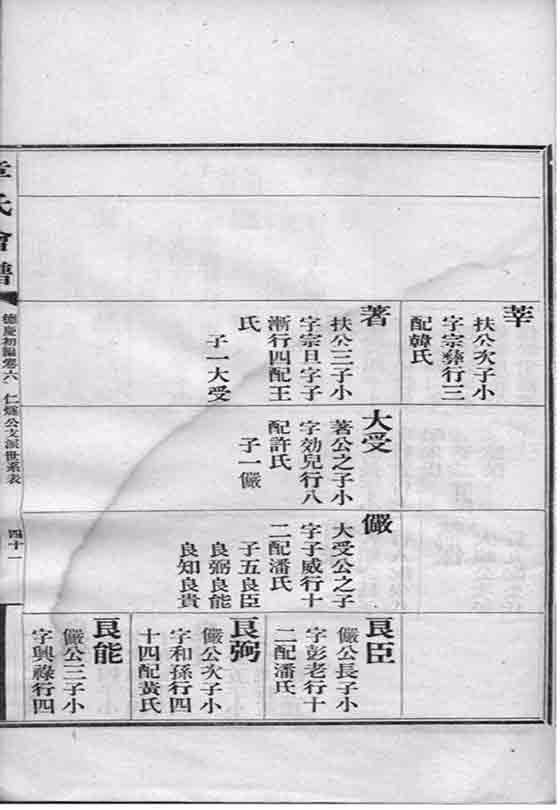 莘
扶公次子小
字宗彝行三
配韓氏
著
扶公三子小
字宗旦字子
漸行四配王
氏
子一大受
大受
著公之子小
字効兒行八
配許氏
子一儼
儼
大受公之子
字子威行十
二配潘氏
子五良臣
良弼良能
良知良貴
良臣
儼公長子小
字彭老行十
二配潘氏
良弼
儼公次子小
字和孫行四
十四配黃氏
良能
儼公三子小
字興祿行四
章氏會譜
德慶初編卷六 仁燧公支派世系表
四十一